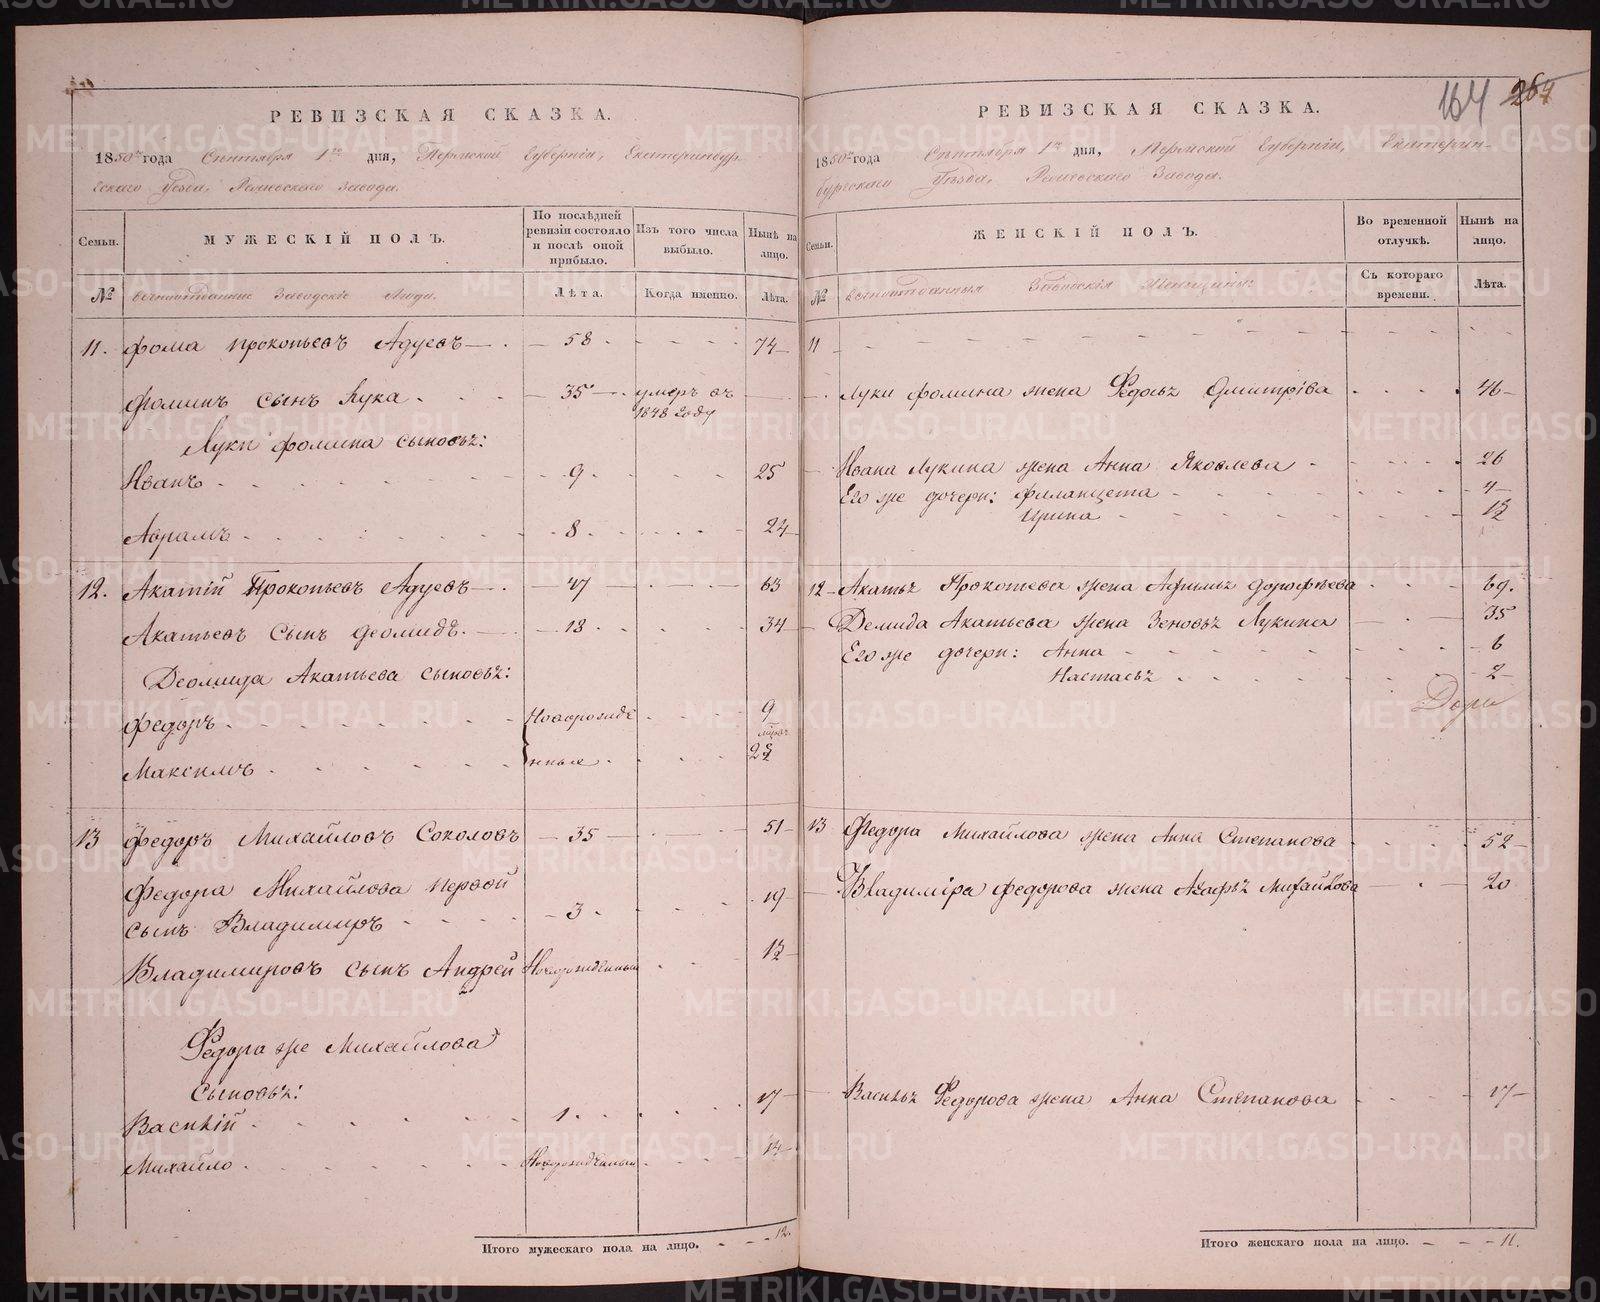 164 267
РЕВИЗСКАЯ СКАЗКА.
1850го года Сентября 1го дня, Пермской Губернии, Екатеринбур-
гскаго Уезда, Завода.
Семьи. МУЖЕСКІЙ ПОЛЪ. По послѣдней ревизіи состояло и послѣ оной прибыло. Изъ того числа выбыло. Нынѣ на лицо.
№ Заводскіе Люди. Лѣта. Когда именно. Лѣта.
11. Фома Прокопьевъ Адуевъ — 58 74
Фоминъ сынъ Лука 35 умеръ въ 1848 году
Луки Фомина сыновьѣ:
Иванъ 9 25
Аврамъ 8 24
12. Акатій Прокопьевъ Адуевъ 47 63
Акатьевъ Сынъ Деомидъ 18 34
Деомида Акатьева сыновьѣ:
Федоръ Новорожде 9
Максимъ нные
13 Федоръ Михайловъ Соколовъ 35 51
Федора Михайлова первой
сынъ Владимиръ 3 19
Владимировъ сынъ Андрей Новорожденный
Федора же Михайлова
Сыновьѣ:
Василій 1 17
Михайло Новорожденный 14
Итого мужескаго пола на лицо. 12.
РЕВИЗСКАЯ СКАЗКА.
1850го года Сентября 1го дня, Пермской Губерніи, Екатерин-
бургскаго Уѣзда, Завода.
Семьи. ЖЕНСКІЙ ПОЛЪ. Во временной отлучкѣ. Нынѣ на лицо.
№ Заводскія Женщины Съ котораго времени. Лѣта.
11
Луки Фомина жена Федосьѣ Дмитріва 46
Ивана Лукина жена Анна Яковлева 26
Его же дочери: Филанцета 4
Ирина
12 Акатьѣ Прокопьева жена Афимьѣ Дорофѣева 69.
Демида Акатьева жена Зеновьѣ Лукина 35
Его же дочери: Анна 6
Настасьѣ 2
13 Федора Михайлова жена Анна Степанова 52
Владиміра Федорова жена Агафьѣ Михайлова 20
Васильѣ Федорова жена Анна Степанова 17
Итого женскаго пола на лицо. 11.
METRIKI.GASO-URAL.RU